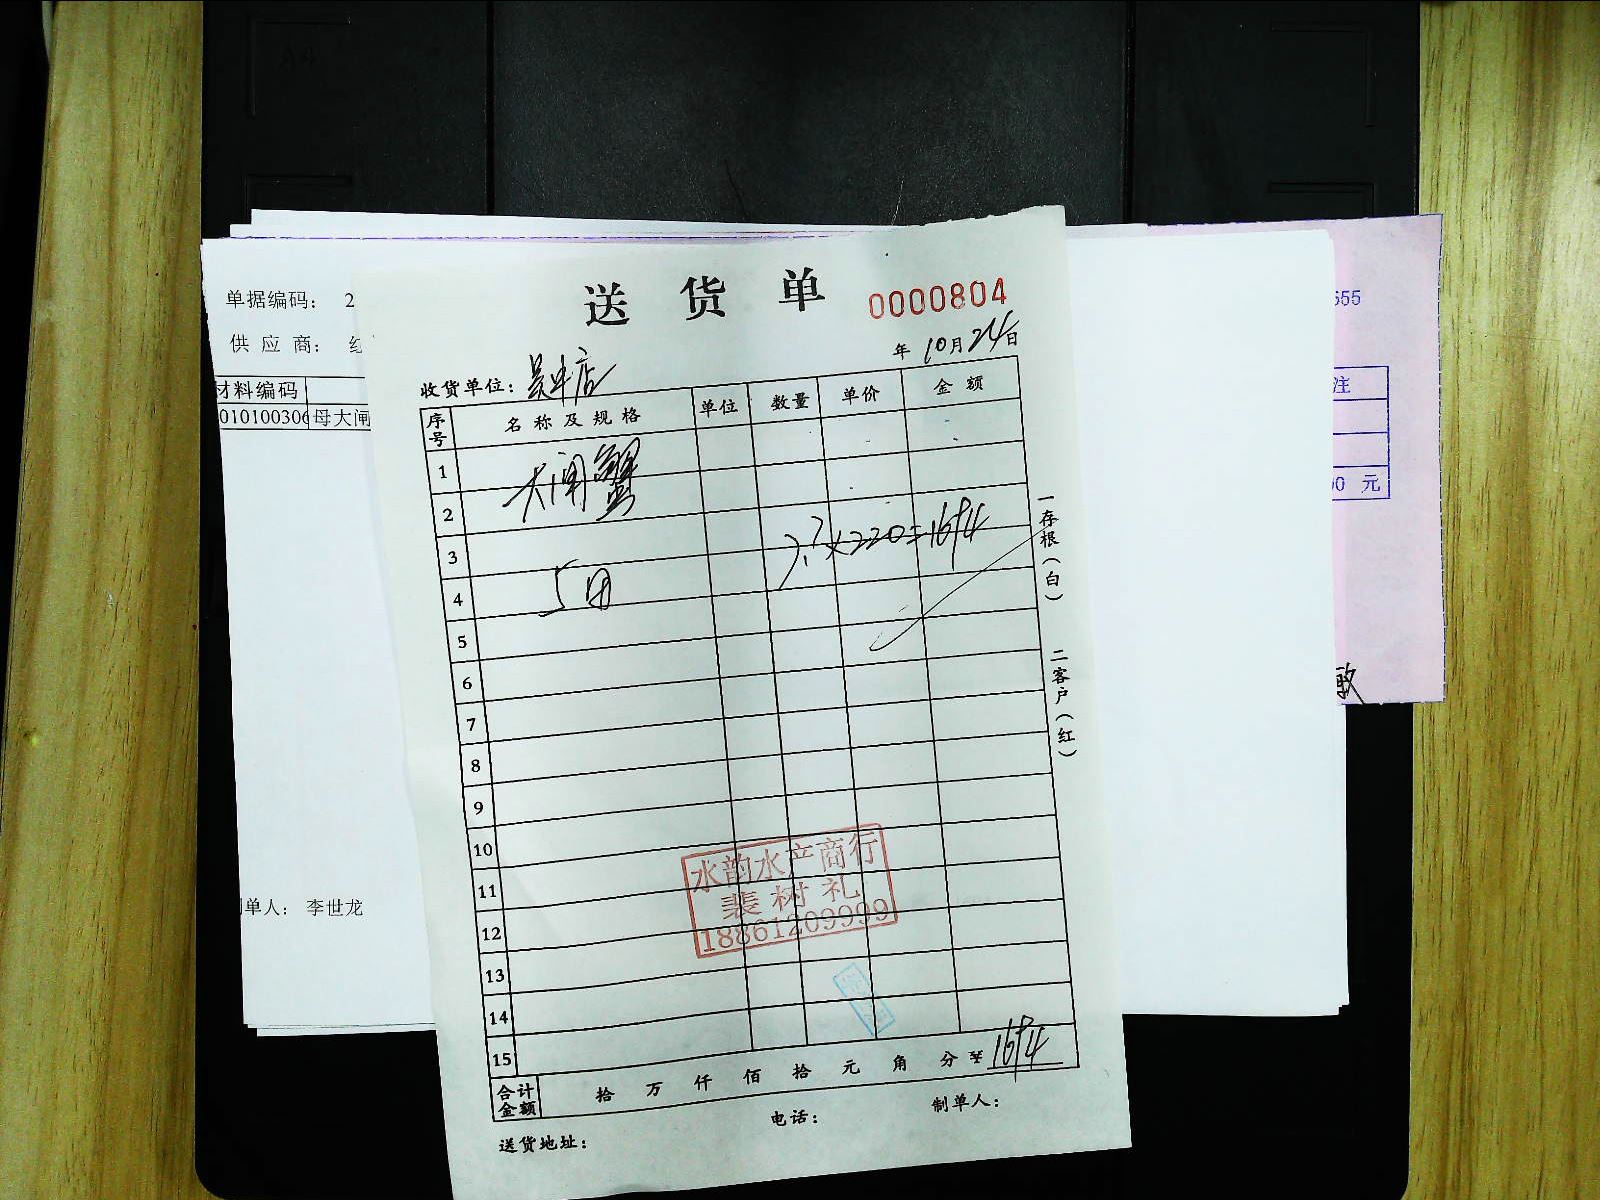 送 货 单
0000804
年 10月24日
收货单位：吴中店
序号 名称及规格 单位 数量 单价 金额
1
大闸蟹
2
3
7.7×220=1694
4
5母
5
6
7
8
9
10
11
12
13
14
15
合计金额 拾 万 仟 佰 拾 元 角 分 1694
送货地址：
电话：
制单人：
一存根（白）
二客户（红）
水韵水产商行
裴树礼
18861209999
单据编码： 2
供 应 商： 红
材料编码
010100306 母大闸
制单人： 李世龙
555
注
00 元
敏